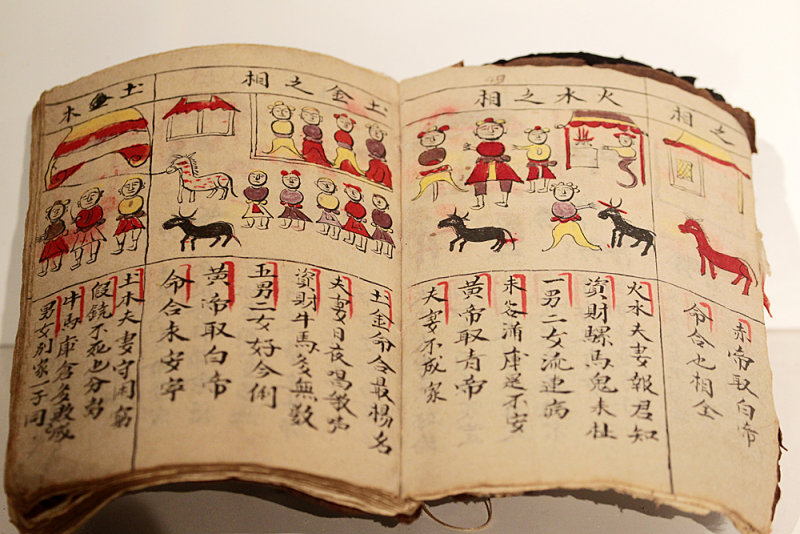 之相
赤帝取白帝
命合也相全
火水之相
火水夫妻報君知
資財騾馬鬼末社
一男二女流連病
未容滿庫还不安
黄帝取青帝
夫妻不成家
土金之相
土金命合最楊名
夫妻日夜
資財牛馬多無数
五男二女好合例
黄帝取白帝
命合未安寧
土木
土木夫妻守困窮
假饒不死也分离
牛馬庫倉多散滅
男女别家一子同